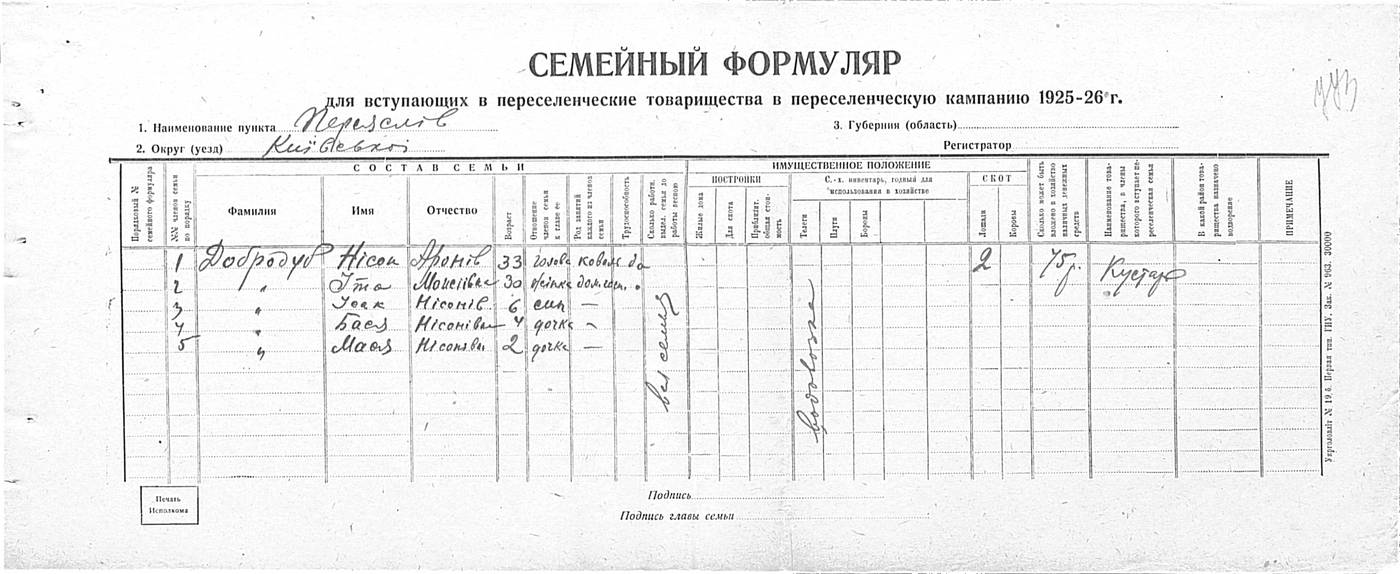 СЕМЕЙНЫЙ ФОРМУЛЯР
для вступающих в переселенческие товарищества в переселенческую кампанию 1925-26 г.
1. Наименование пункта Переяслів
3. Губерния (область)
2. Округ (уезд) Київської
Регистратор
СОСТАВ СЕМЬИ
ИМУЩЕСТВЕННОЕ ПОЛОЖЕНИЕ
ПОСТРОЙКИ
С.-х. инвентарь, годный для использования в хозяйстве
СКОТ
Порядковый № семейного формуляра
№№ членов семьи по порядку
Фамилия
Имя
Отчество
Возраст
Отношение членов семьи к главе ее
Род занятий каждого из членов семьи
Трудоспособность
Сколько работн. выдел. семья до работы весною
Жилые дома
Для скота
Приблизит. общая стоимость
Телеги
Плуги
Бороны
Лошади
Коровы
Сколько может быть вложено в хозяйство наличных денежных средств
Наименование товарищества, в члены которого вступает переселенческая семья
В какой район товарищества назначено водворение
ПРИМЕЧАНИЕ
1 Добродуб Нісон Аронів 33 голова коваль да 2 75 р. Кустарь
2 " Іта Мойсіївна 30 жінка дом. хоз. "
3 " Ісак Нісонів 6 син —
4 " Бася Нісонівна 4 дочка —
5 " Мася Нісонівна 2 дочка —
вся семья
водовозка
Печать
Исполкома
Подпись
Подпись главы семьи
Укрголовліт № 19,6. Первая тип. ГИУ, Зак. № 963. 30000